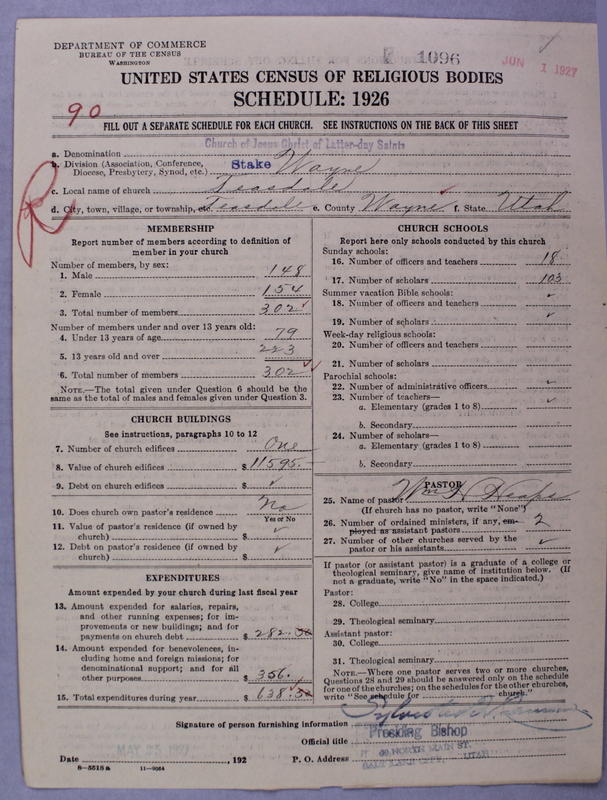 DEPARTMENT OF COMMERCE
BUREAU OF THE CENSUS
WASHINGTON
1096
JUN 1 1927
UNITED STATES CENSUS OF RELIGIOUS BODIES
SCHEDULE: 1926
90
FILL OUT A SEPARATE SCHEDULE FOR EACH CHURCH. SEE INSTRUCTIONS ON THE BACK OF THIS SHEET
Church of Jesus Christ of Latter-day Saints
a. Denomination
b. Division (Association, Conference, Diocese, Presbytery, Synod, etc.) Stake Wayne
c. Local name of church Teasdale
d. City, town, village, or township, etc. Teasdale e. County Wayne f. State Utah
R
MEMBERSHIP
Report number of members according to definition of
member in your church
Number of members, by sex:
1. Male 148
2. Female 154
3. Total number of members 302
Number of members under and over 13 years old:
4. Under 13 years of age 79
5. 13 years old and over 223
6. Total number of members 302
NOTE.—The total given under Question 6 should be the
same as the total of males and females given under Question 3.
CHURCH BUILDINGS
See instructions, paragraphs 10 to 12
7. Number of church edifices One
8. Value of church edifices $11595.
9. Debt on church edifices $
10. Does church own pastor's residence? No
Yes or No
11. Value of pastor's residence (if owned by
church) $
12. Debt on pastor's residence (if owned by
church) $
EXPENDITURES
Amount expended by your church during last fiscal year
13. Amount expended for salaries, repairs,
and other running expenses; for im-
provements or new buildings; and for
payments on church debt $282.50
14. Amount expended for benevolences, in-
cluding home and foreign missions; for
denominational support; and for all
other purposes $356.
15. Total expenditures during year $638.50
CHURCH SCHOOLS
Report here only schools conducted by this church
Sunday schools:
16. Number of officers and teachers 18
17. Number of scholars 103
Summer vacation Bible schools:
18. Number of officers and teachers
19. Number of scholars
Week-day religious schools:
20. Number of officers and teachers
21. Number of scholars
Parochial schools:
22. Number of administrative officers
23. Number of teachers—
a. Elementary (grades 1 to 8)
b. Secondary
24. Number of scholars—
a. Elementary (grades 1 to 8)
b. Secondary
PASTOR
25. Name of pastor Wm H Heaps
(If church has no pastor, write "None")
26. Number of ordained ministers, if any, em-
ployed as assistant pastors 2
27. Number of other churches served by the
pastor or his assistants
If pastor (or assistant pastor) is a graduate of a college or
theological seminary, give name of institution below. (If
not a graduate, write "No" in the space indicated.)
Pastor:
28. College
29. Theological seminary
Assistant pastor:
30. College
31. Theological seminary
NOTE.—Where one pastor serves two or more churches,
Questions 28 and 29 should be answered only on the schedule
for one of the churches; on the schedules for the other churches,
write "See schedule for church."
Signature of person furnishing information
Official title Presiding Bishop
MAY 25 1927
Date , 192 P. O. Address 40 NORTH MAIN ST.
SALT LAKE CITY, UTAH
8—5518a 11—9064